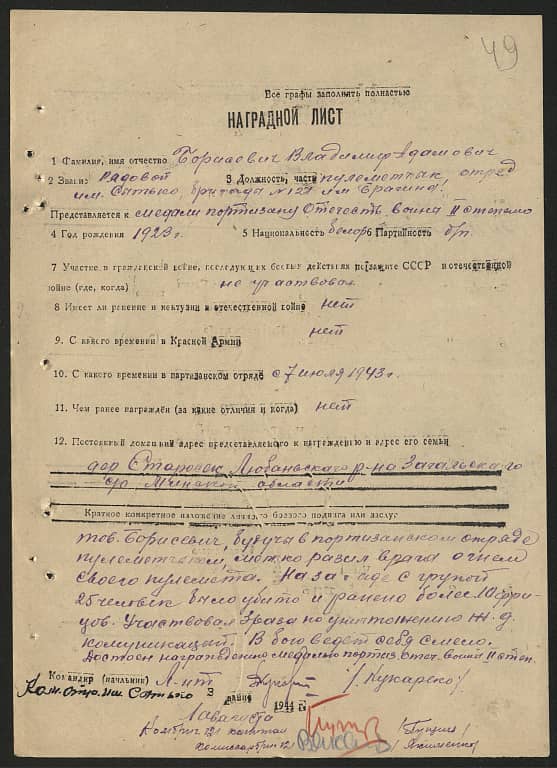 49
Все графы заполнять полностью
НАГРАДНОЙ ЛИСТ
1 Фамилия, имя отчество Борисевич Владимир Адамович
2 Звание рядовой 3 Должность, часть пулеметчик отряд
им. Сатько бригада № 121 им Брагина
Представляется к медали партизану Отечеств. война II степени
4 Год рождения 1923 г. 5 Национальность белор 6 Партийность б/п
7 Участие в гражданской войне, последующих боевых действиях по защите СССР и отечественной
войне (где, когда) не участвовал
8 Имеет ли ранение и контузии в отечественной войне нет
9. С какого времении в Красной Армии нет
10. С какого времении в партизанском отряде с 7 июля 1943 г.
11. Чем ранее награждён (за какие отличия и когда) нет
12. Постоянный домашний адрес представляемого к награждению и адрес его семьи
дер Любаньского р-на Загальского
с/с Минской области
Краткое конкретное изложение личного боевого подвига или заслуг
тов. Борисевич будучи в партизанском отряде
пулеметчиком метко разил врага огнем
своего пулемета. На засаде с групой
25 человек было убито и ранено более 10 фри-
цов. Участвовал два раза по уничтожению ж. д.
комуникаций. В бою ведет себя смело.
Достоен награждению медалью партиз. отеч. войны II степ.
Командир (начальник) Л-нт /Кукареко/
Ком. отр. им. Сатько
3 1944 г.
Комбриг 121 капитан
Комиссар бриг 121